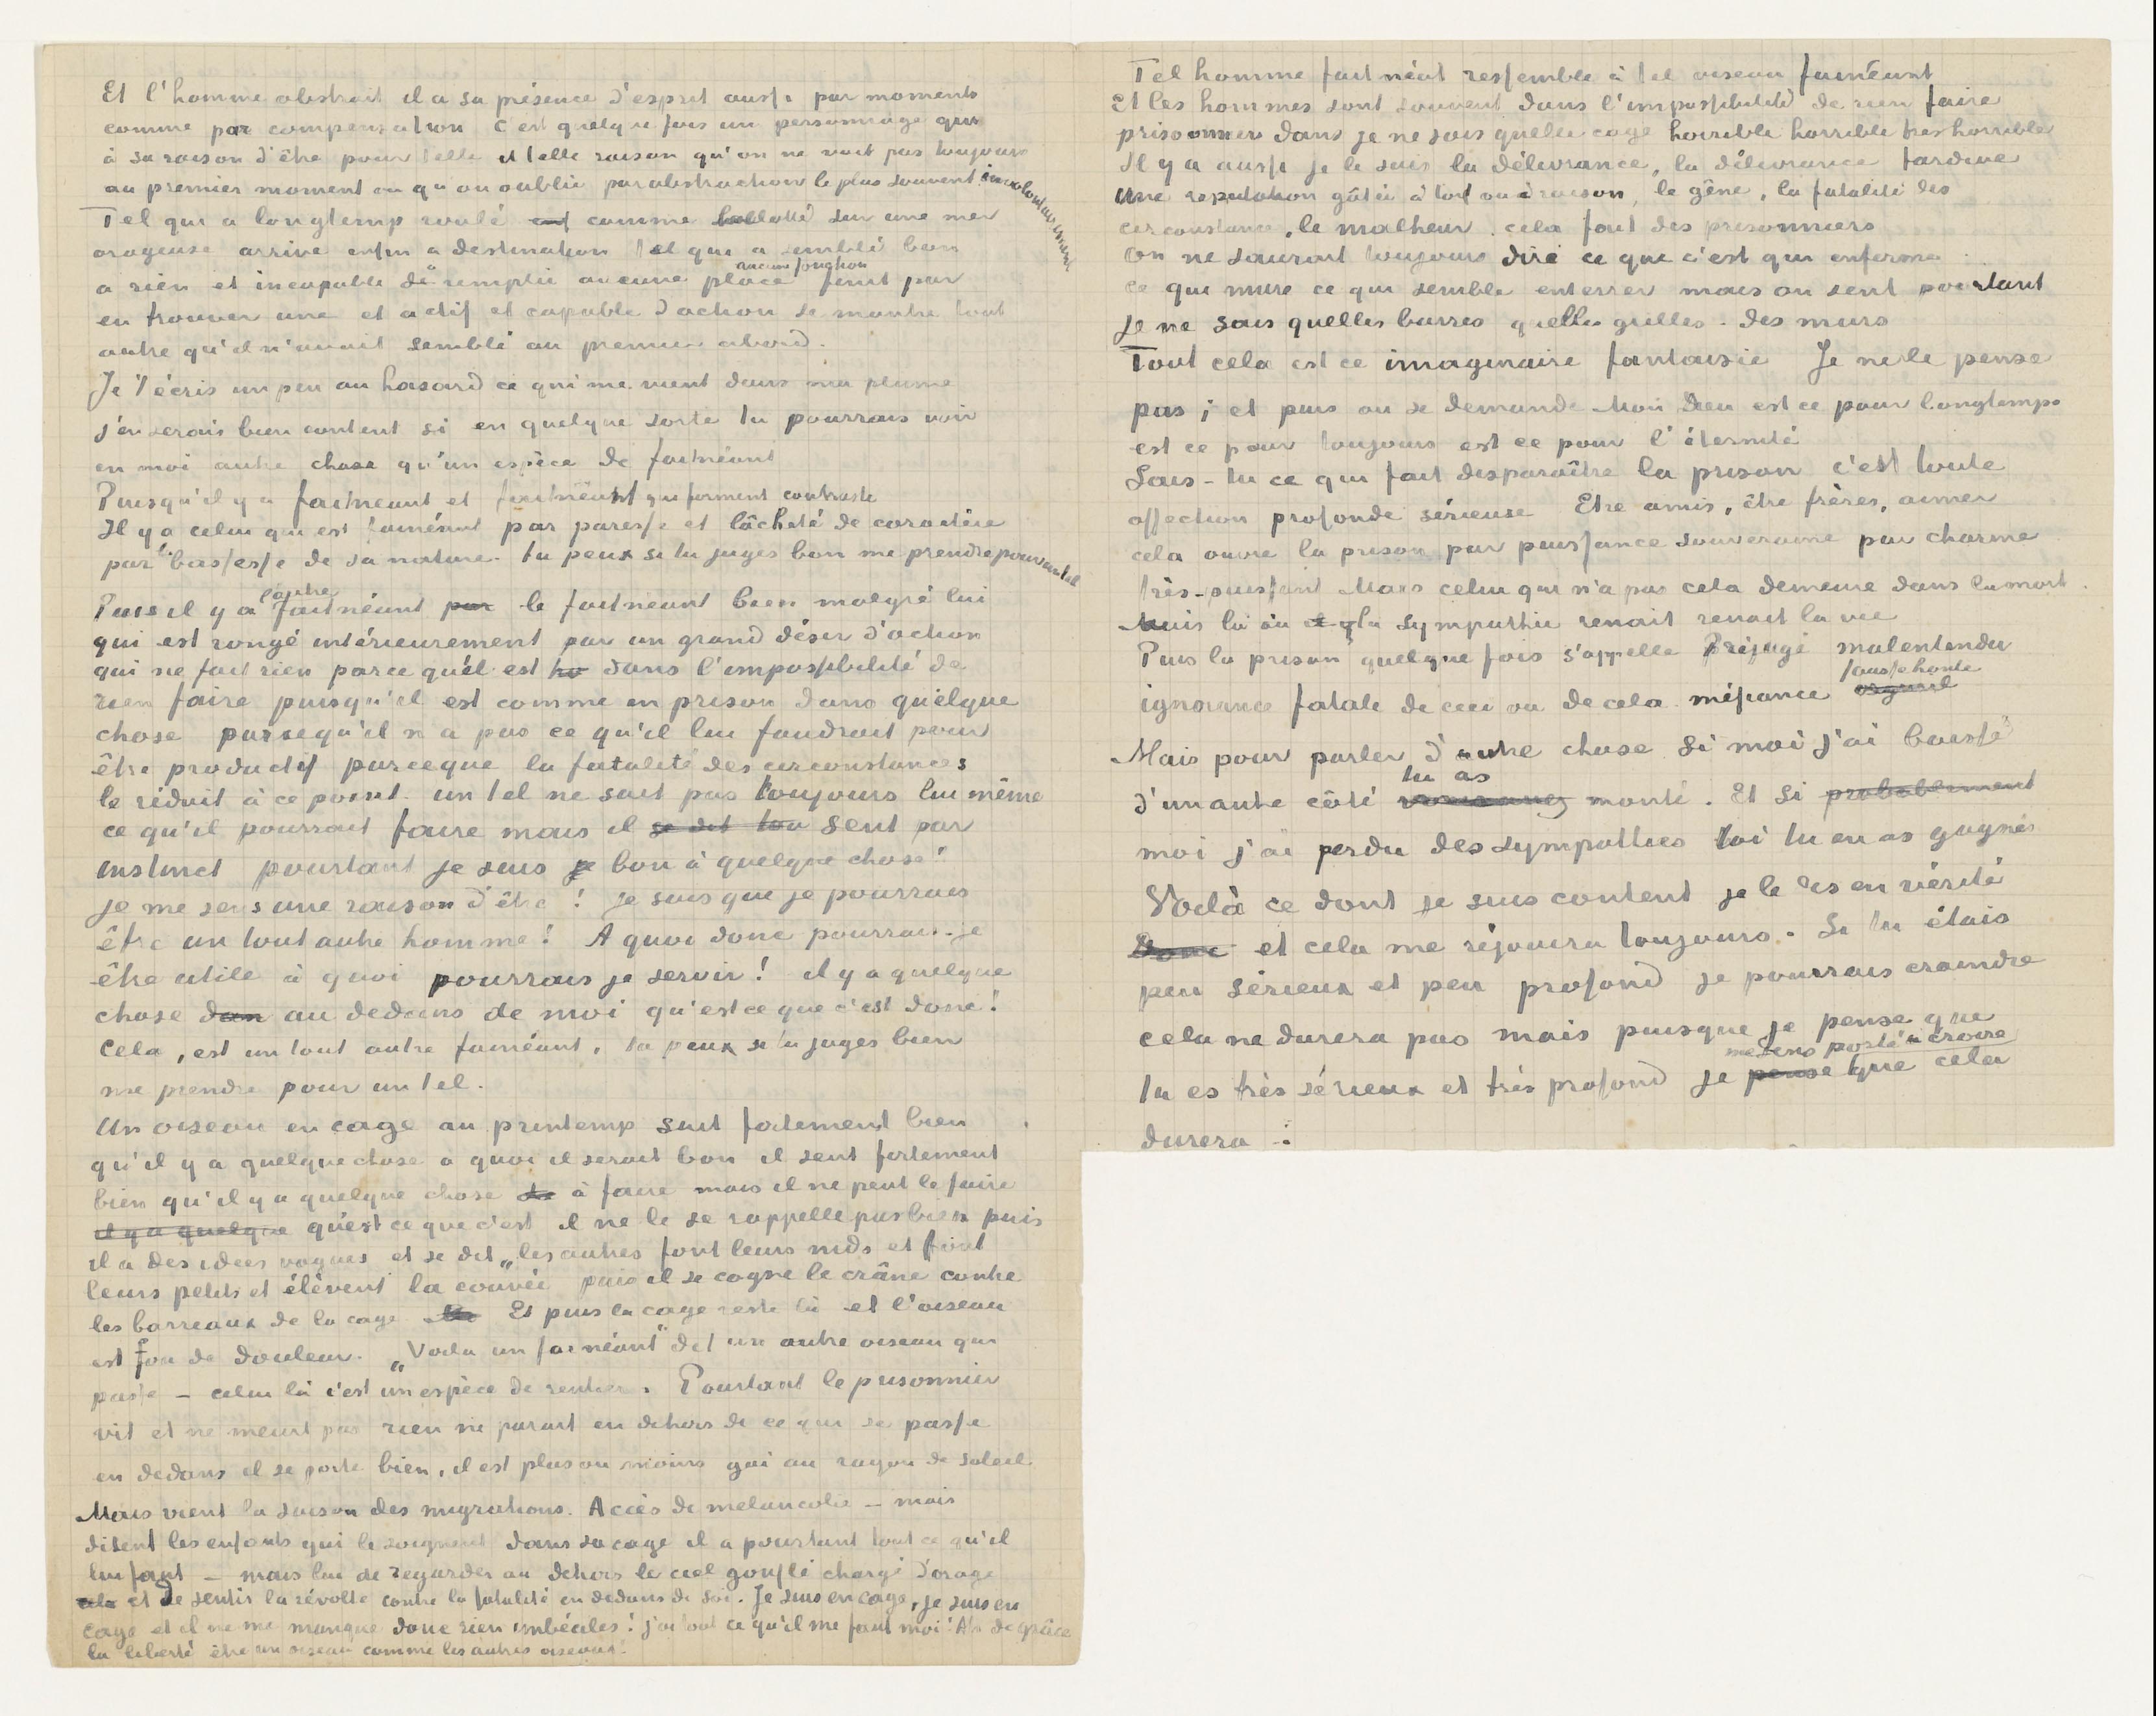 Et l'homme abstrait il a sa présence d'esprit aussi par moments
comme par compensation C'est quelque fois un personnage qui
à sa raison d'être pour telle et telle raison qu'on ne voit pas toujours
au premier moment ou qu'on oublie par abstraction le plus souvent involontairement
Tel qui a longtemp roulé comme ballotté sur une mer
orageuse arrive enfin a destination tel qui a semblé bon
a rien et incapable de remplir aucune place aucune fonction finit par
en trouver une et actif et capable d'action se montre tout
autre qu'il n'avait semblé au premier abord.
Je t'écris un peu au hasard ce qui me vient dans ma plume
j'en serais bien content si en quelque sorte tu pourrais voir
en moi autre chose qu'un espèce de faitnéant
Puisqu'il y a faitneant et faitnéant qui forment contraste
Il y a celui qui est fainéant par paresse et lâcheté de caractère
par la bassesse de sa nature. tu peux si tu juges bon me prendre pour un tel
Puis il y a l'autre faitnéant par le faitneant bien malgré lui
qui est rongé intérieurement par un grand désir d'action
qui ne fait rien parce qu'il est ho dans l'impossibilité de
rien faire puisqu'il est comme en prison dans quelque
chose parsequ'il n'a pas ce qu'il lui faudrait pour
être productif parceque la fatalité des circonstances
le réduit à ce point. un tel ne sait pas toujours lui même
ce qu'il pourrait faire mais il se dit tou sent par
instinct pourtant je suis je bon à quelque chose!
je me sens une raison d'être! je sais que je pourrais
être un tout autre homme! A quoi donc pourrai-je
être utile à quoi pourrais je servir! il y a quelque
chose dan au dedans de moi qu'est ce que c'est donc!
Cela, est un tout autre fainéant, tu peux si tu juges bien
me prendre pour un tel.
Un oiseau en cage au printemp sait fortement bien
qu'il y a quelque chose a quoi il serait bon il sent fortement
bien qu'il y a quelque chose de à faire mais il ne peut le faire
il y a quelque qu'est ce que c'est il ne le se rappelle pas bien puis
il a des idees vagues et se dit „les autres font leurs nids et font
leurs petits et élèvent la couvée puis il se cogne le crâne contre
les barreaux de la cage Et puis la cage reste là et l'oiseau
est fou de douleur. „Voila un fainéant" dit un autre oiseau qui
passe – celui là c'est un espèce de rentier. Pourtant le prisonnier
vit et ne meurt pas rien ne parait en dehors de ce qui se passe
en dedans il se porte bien, il est plus ou moins gai au rayon de soleil
Mais vient la saison des migrations. Accès de melancolie – mais
disent les enfants qui le soignent dans sa cage il a pourtant tout ce qu'il
lui faut – mais lui de regarder au dehors le ciel gonflé chargé d'orage
et de sentir la révolte contre la fatalité en dedans de soi. Je suis en cage, je suis en
cage et il ne me manque donc rien imbéciles! j'ai tout ce qu'il me faut moi! Ah de grâce
la liberté être un oiseau comme les autres oiseaux!
Tel homme fait néat ressemble à tel oiseau fainéant
Et les hommes sont souvent dans l'impossibilité de rien faire
prisonniers dans je ne sais quelle cage horrible horrible très horrible
Il y a aussi je le sais la délivrance, la délivrance tardive
Une reputation gâtée à tort ou à raison, le gêne, la fatalité des
circonstances, le malheur, cela fait des prisonniers
On ne saurait toujours dire ce que c'est qui enferme
ce qui mure ce qui semble enterrer mais on sent pourtant
je ne sais quelles barres quelles grilles – des murs
Tout cela est ce imaginaire fantaisie Je ne le pense
pas; et puis on se demande Mon Dieu est ce pour longtemps
est ce pour toujours est ce pour l'éternité
Sais-tu ce qui fait disparaître la prison c'est toute
affection profonde sérieuse Etre amis, être frères, aimer
cela ouvre la prison par puissance souveraine par charme
très-puissant Mais celui qui n'a pas cela demeure dans la mort.
Mais là où la sympathie renait renait la vie
Puis la prison quelque fois s'appelle Préjugé malentendu
ignorance fatale de ceci ou de cela méfiance orgueil fausse honte
Mais pour parler d'autre chose Si moi j'ai baissé
d'un autre côté tu as monté. Et si probablement
moi j'ai perdu des sympathies toi tu en as gagnés
Voilà ce dont je suis content je le dis en vérité
Donc et cela me réjouira toujours. Si tu étais
peu sérieux et peu profond je pourrais craindre
cela ne durera pas mais puisque je pense que
tu es très sérieux et très profond je pense me sens porté à croire que cela
durera –: